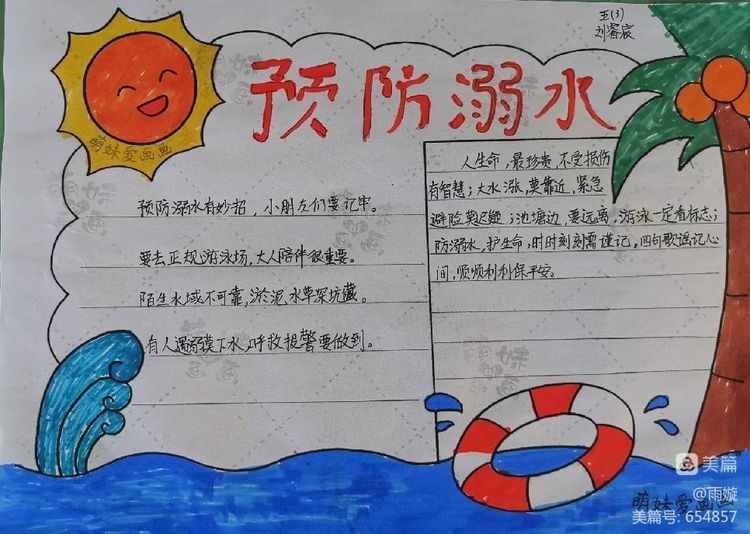 五(3)
刘睿宸
预防溺水
萌妹爱画画
预防溺水有妙招，小朋友们要记牢。
要去正规游泳场，大人陪伴很重要。
陌生水域不可靠，淤泥水草深坑藏。
有人遇溺莫下水，呼救报警要做到。
人生命，最珍贵，不受损伤
有智慧；大水涨，莫靠近，紧急
避险莫迟疑；池塘边，要远离，游泳一定看标志；
防溺水，护生命，时时刻刻需谨记，四句歌谣记心
间，顺顺利利保平安。
美篇
@雨璇
萌妹爱画画
美篇号: 654857